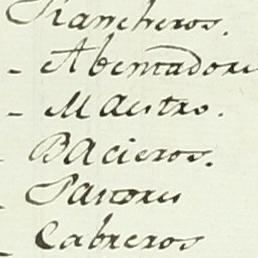 Rancheros.
- Abentadore
- Maestro.
- Bacieros.
- Pastores
- Cabreros